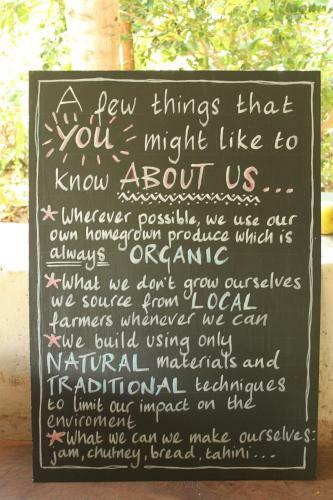 A few things that
YOU might like to
know ABOUT US...
* Wherever possible, we use our
own homegrown produce which is
always ORGANIC
* What we don't grow ourselves
we source from LOCAL
farmers whenever we can
* We build using only
NATURAL materials and
TRADITIONAL techniques
to limit our impact on the
enviroment
* What we can we make ourselves:
jam, chutney, bread, tahini...